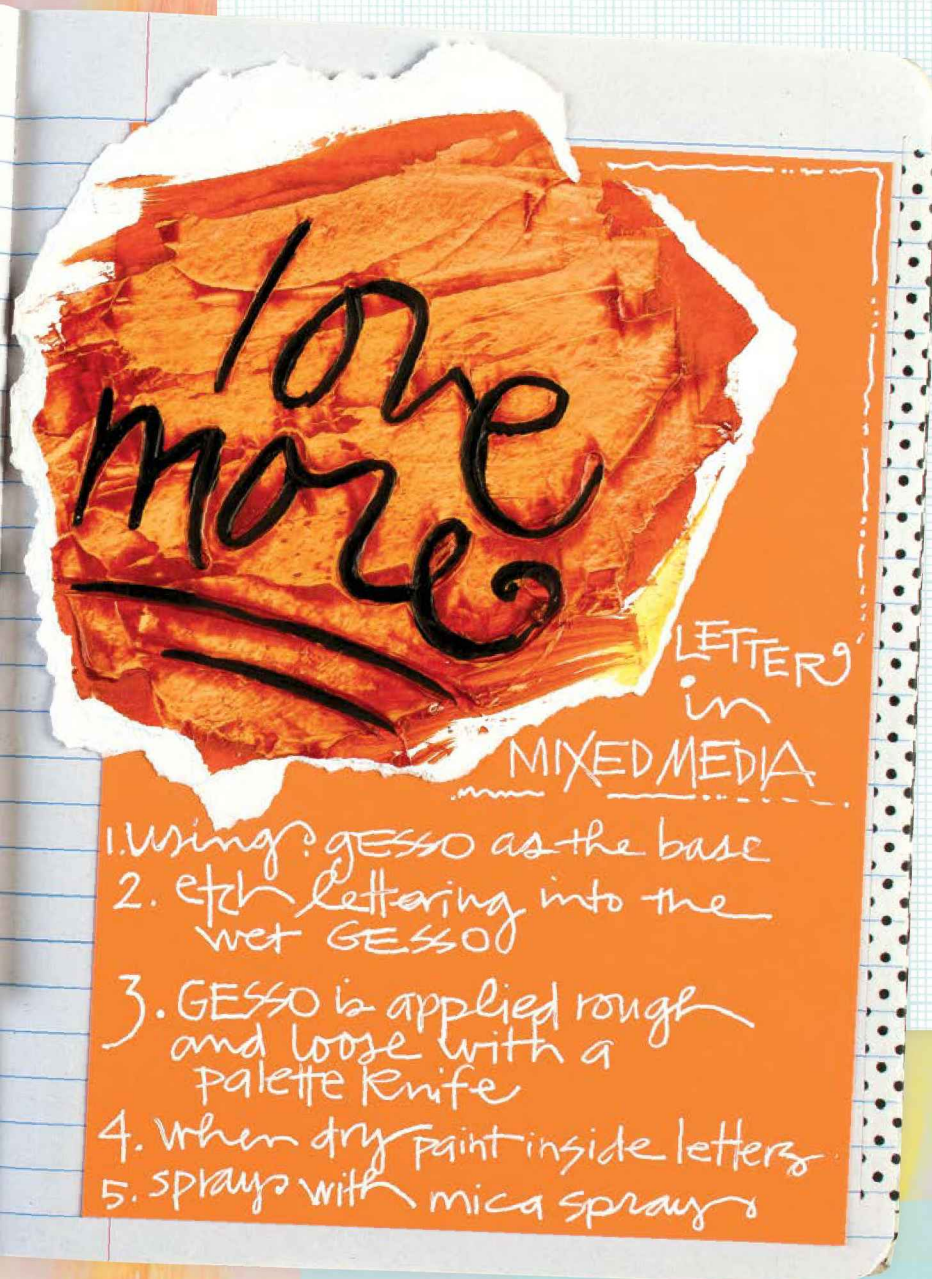 love
more
LETTERS
in
MIXED MEDIA
1. using gESSO as the base
2. etch lettering into the
wet GESSO
3. GESSO is applied rough
and loose with a
palette knife
4. when dry paint inside letters
5. sprays with mica sprays